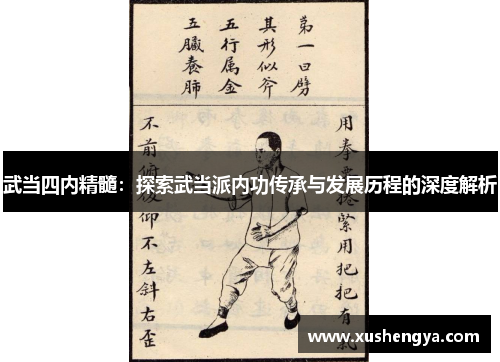 第一曰劈
其形似斧
五行属金
五臟養肺
用拳要捲緊用把把有氣
不前俯後仰不左斜右歪
武当四内精髓：探索武当派内功传承与发展历程的深度解析
www.xushengya.com